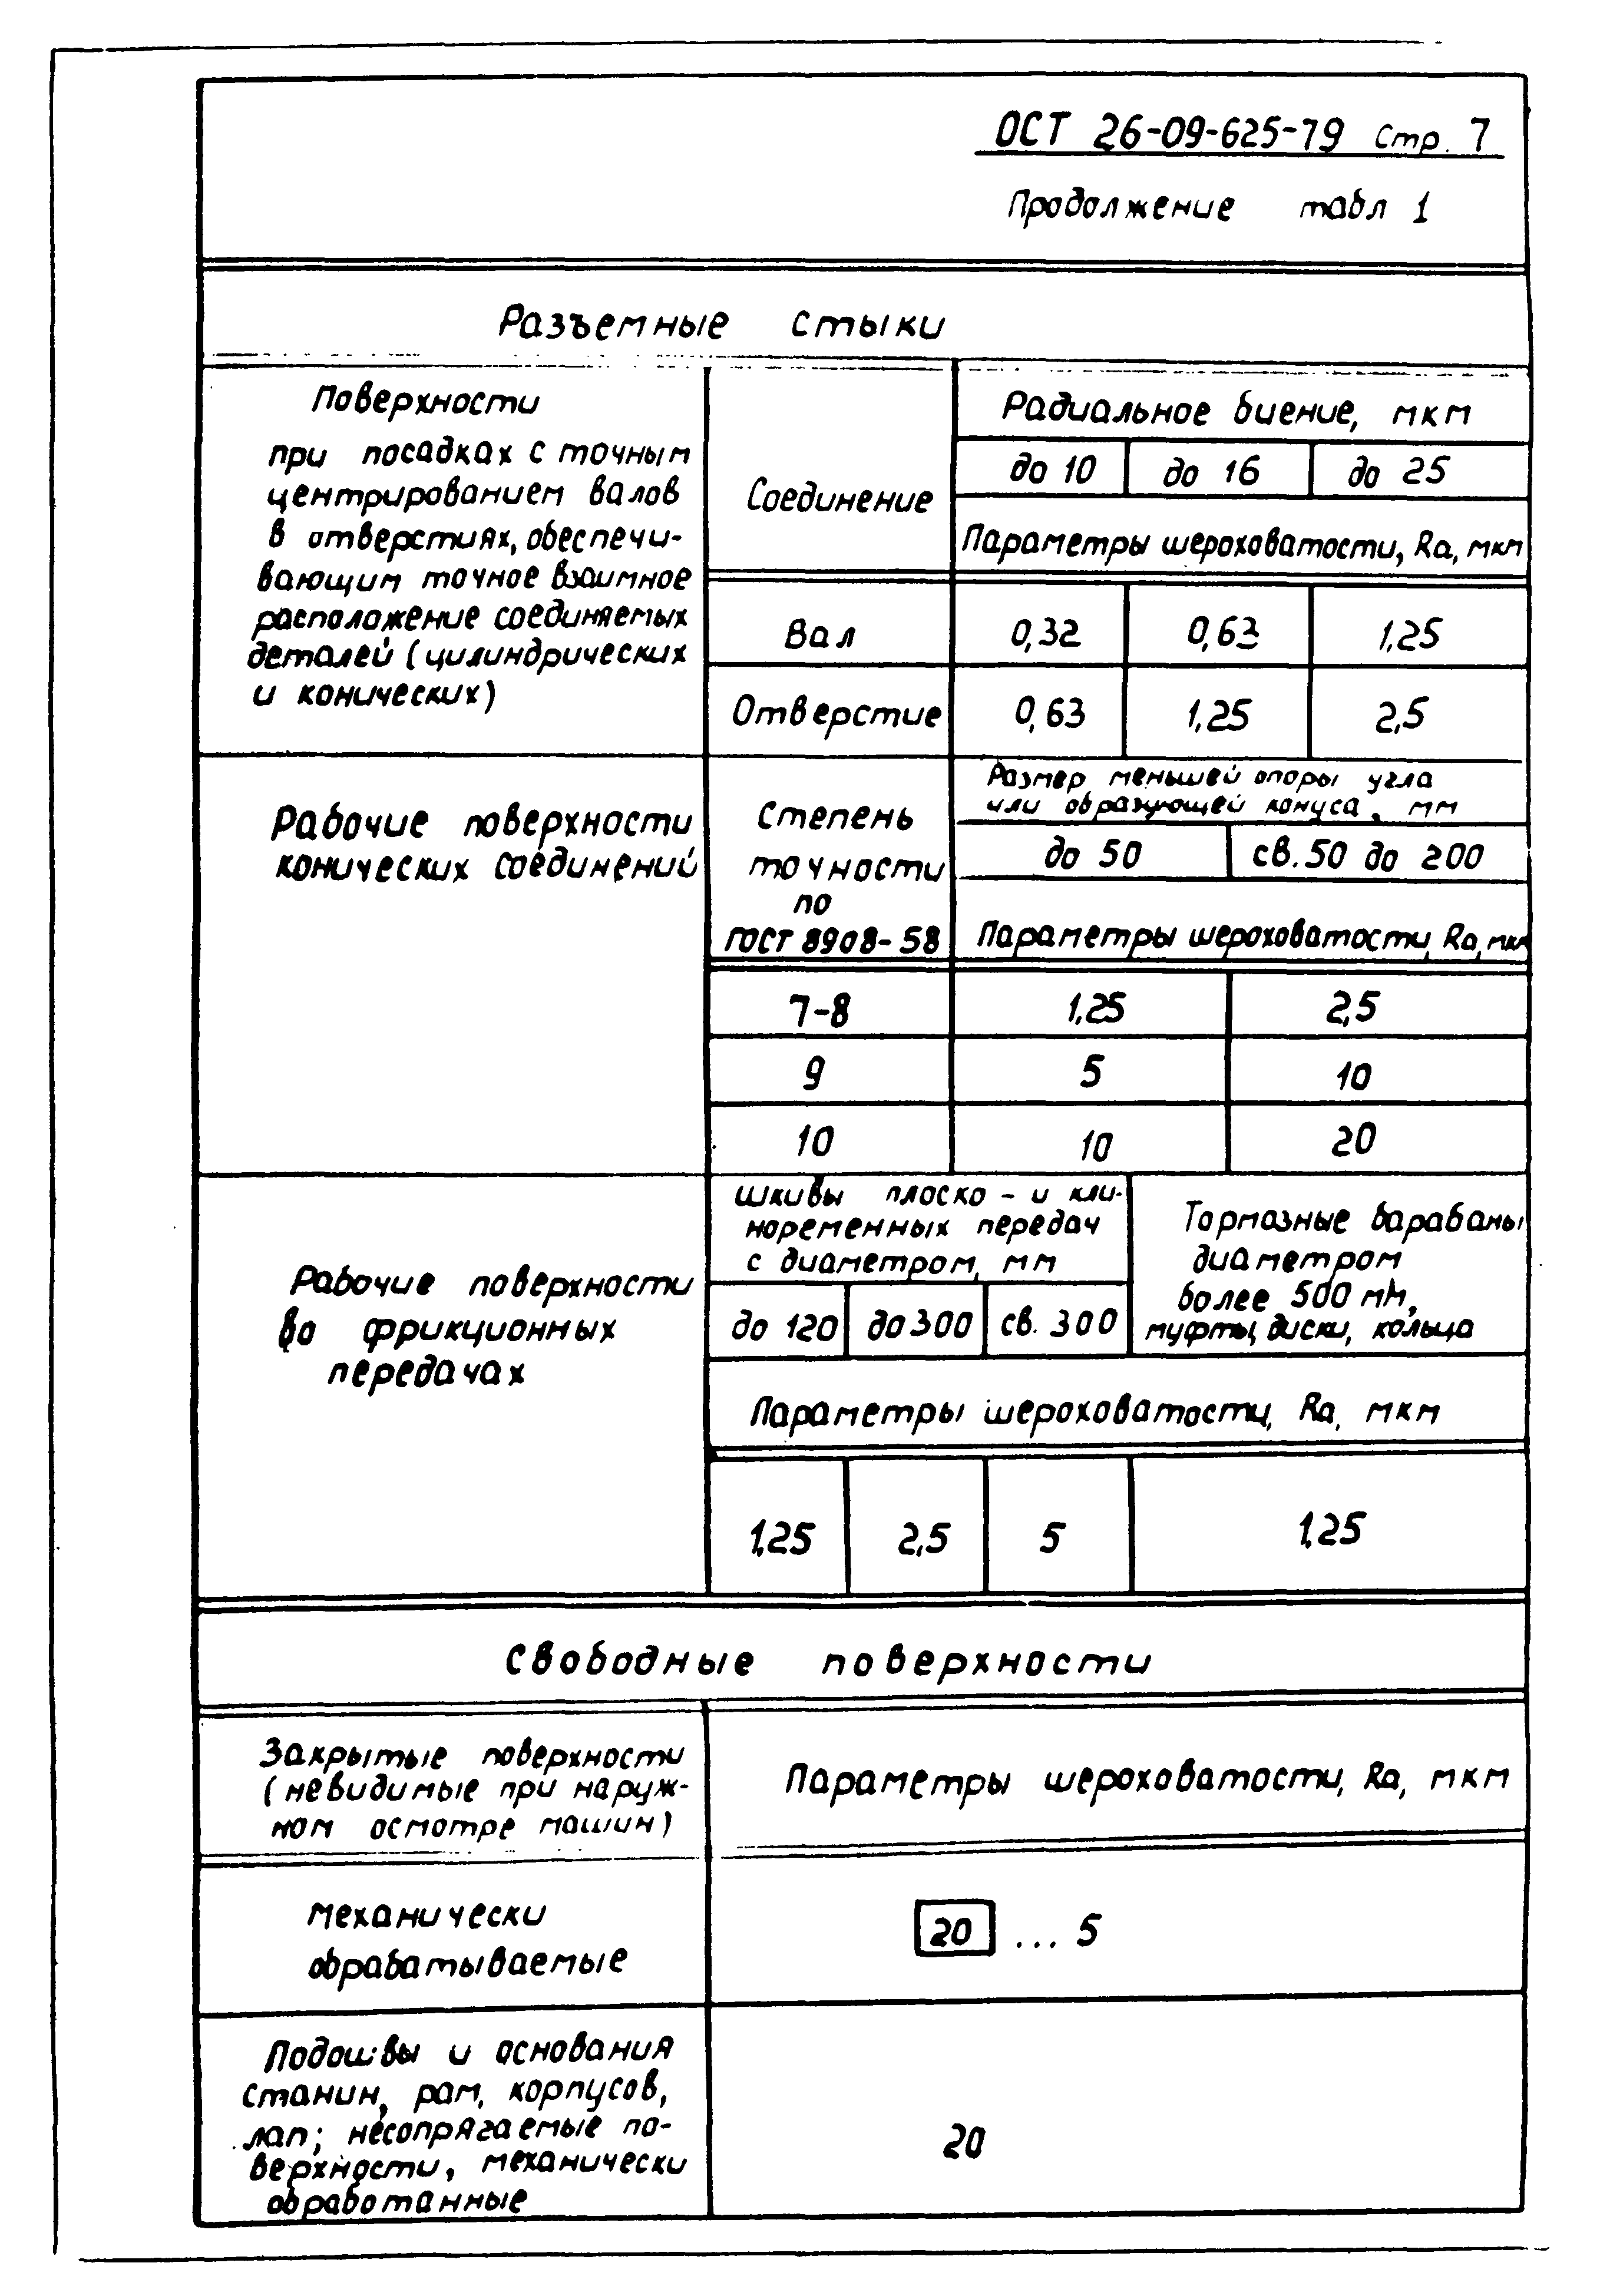 ОСТ 26-09-625-79 Стр. 7
Продолжение табл 1
Разъемные стыки
Поверхности
при посадках с точным
центрированием валов
в отверстиях, обеспечи-
вающим точное взаимное
расположение соединяемых
деталей (цилиндрических
и конических)
Соединение
Радиальное биение, мкм
до 10 до 16 до 25
Параметры шероховатости, Ra, мкм
Вал 0,32 0,63 1,25
Отверстие 0,63 1,25 2,5
Рабочие поверхности
конических соединений
Степень
точности
по
ГОСТ 8908-58
Размер меньшей опоры угла
или образующей конуса, мм
до 50 св. 50 до 200
Параметры шероховатости, Ra, мкм
7-8 1,25 2,5
9 5 10
10 10 20
Рабочие поверхности
во фрикционных
передачах
шкивы плоско - и кли-
ноременных передач
с диаметром, мм
до 120 до 300 св. 300
Тормозные барабаны
диаметром
более 500 мм,
муфты, диски, кольца
Параметры шероховатости, Ra, мкм
1,25 2,5 5 1,25
Свободные поверхности
Закрытые поверхности
(невидимые при наруж-
ном осмотре машин)
Параметры шероховатости, Ra, мкм
Механически
обрабатываемые
20 ... 5
Подошвы и основания
станин, рам, корпусов,
лап; несопрягаемые по-
верхности, механически
обработанные
20